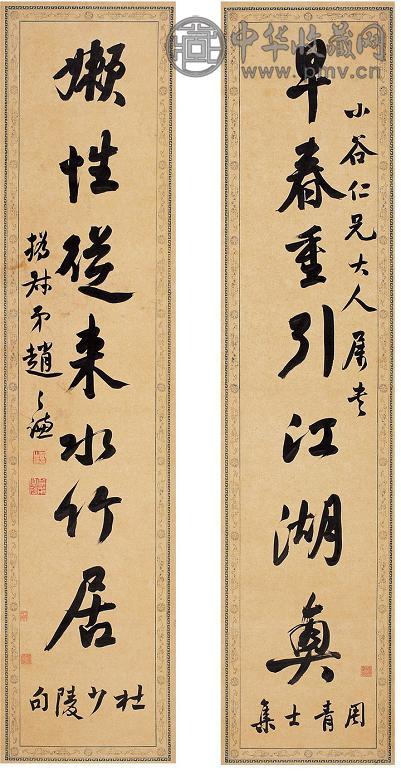 中华收藏网
www.pmv.cn
小谷仁兄大人属书
早春重引江湖興
周青士集
嬾性從来水竹居
杜少陵句
撝叔弟趙之謙